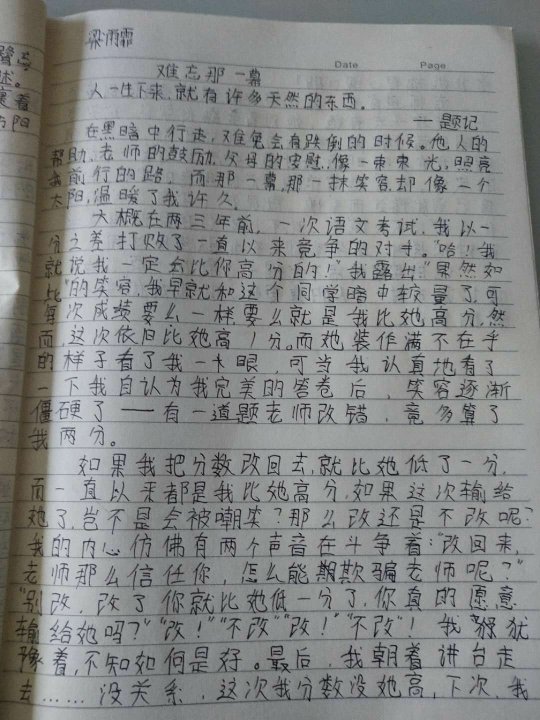 梁雨霏
Date Page
难忘那一幕
人一生下来,就有许多天然的东西。
——题记
在黑暗中行走,难免会有跌倒的时候。他人的
帮助,老师的鼓励,父母的安慰,像一束束光,照亮
我前行的路,而那一幕,那一抹笑容,却像一个
太阳,温暖了我许久。
大概在两三年前,一次语文考试,我以一
分之差打败了一直以来竞争的对手。"哈!我
就说我一定会比你高分的!"我露出"果然如
此"的笑容,我早就和这个同学暗中较量了,可
每次成绩要么一样要么就是我比她高分,然
而,这次依旧比她高1分。而她装作满不在乎
的样子看了我一卡眼,可当我认真地看了
一下我自认为我完美的答卷后,笑容逐渐
僵硬了——有一道题老师改错,竟多算了
我两分。
如果我把分数改回去,就比她低了一分,
而一直以来都是我比她高分,如果这次输给
她了,岂不是会被嘲笑?那么改还是不改呢?
我的内心仿佛有两个声音在斗争着:"改回来,
老师那么信任你,怎么能欺骗老师呢?"
"别改,改了你就比她低一分了,你真的愿意
输给她吗?""改!""不改""改!""不改"!我犹
豫着,不知如何是好。最后,我朝着讲台走
去……没关系,这次我分数没她高,下次,我